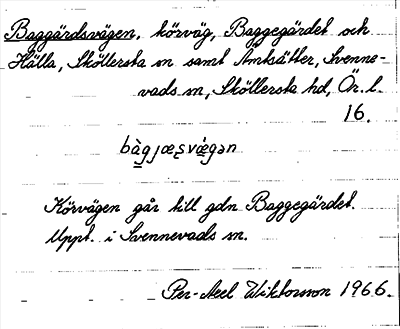 Baggärdsvägen, körväg, Baggegärdet och
Hälla, Sköllersta sn samt Amtsätter, Svenne-
vads sn, Sköllersta hd, Ör. l.
16.
bàgjæʂvǽgən
Körvägen går till gdn Baggegärdet.
Uppt. i Svennevads sn.
Per-Axel Wiktorsson 1966.